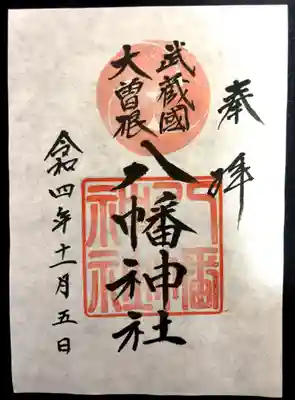 奉拝
武蔵國
大曽根
八幡神社
八幡神社
令和四年十一月五日